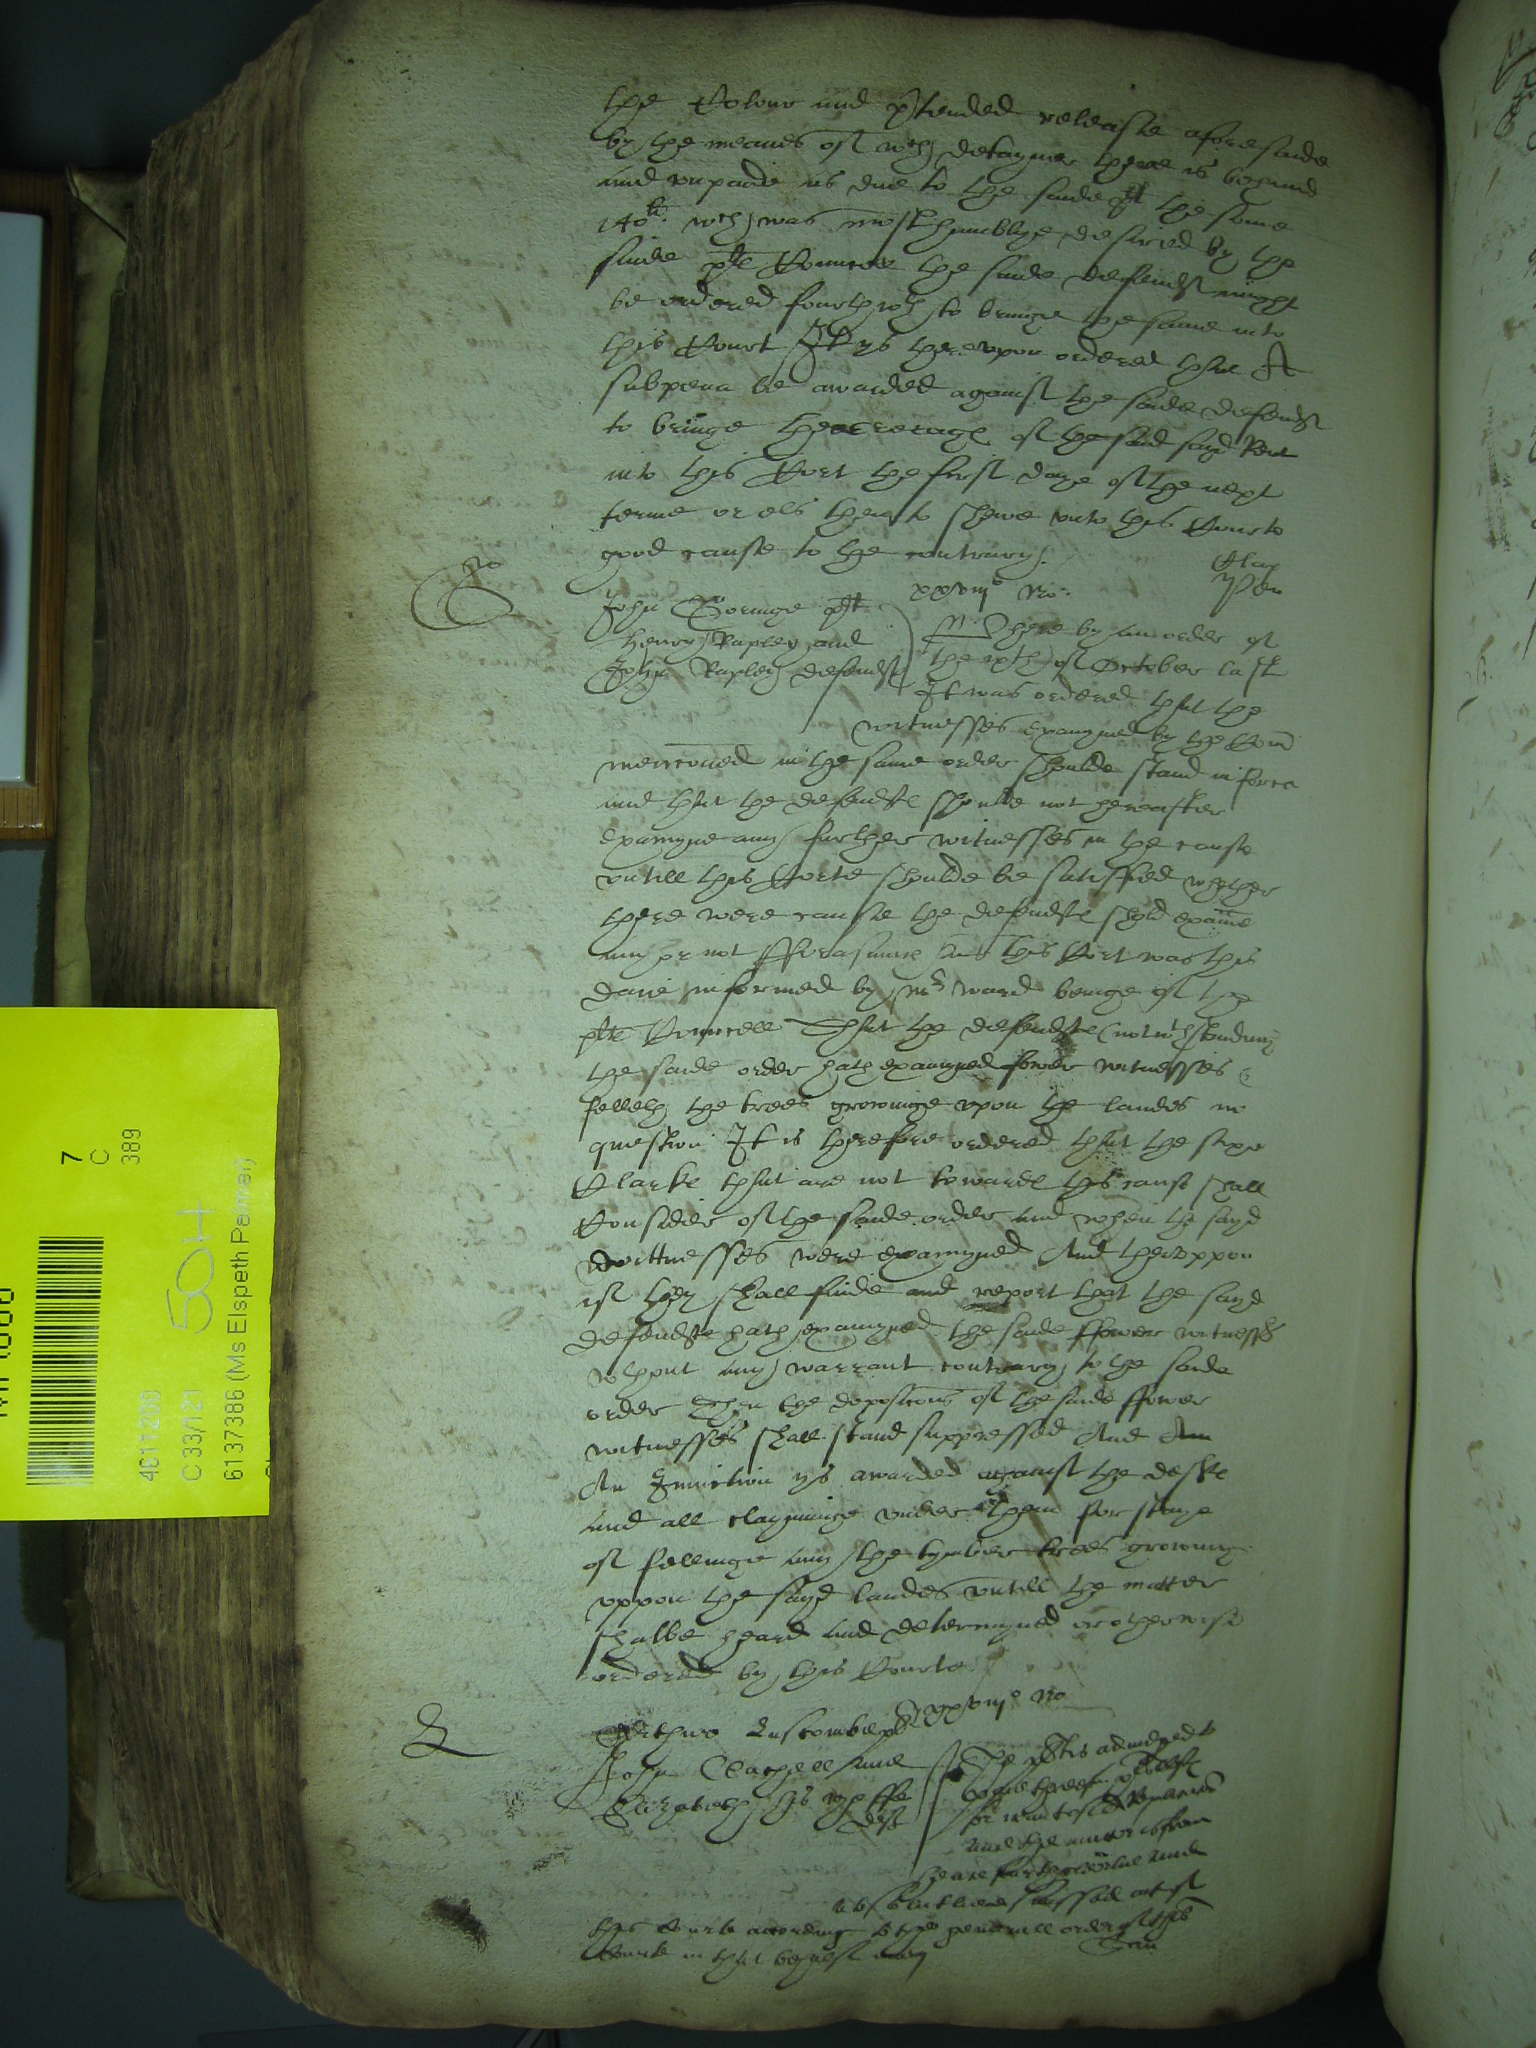 the Colour and ptended release aforesaide
by the meanes of wch detayner there is behind
and unpaide as due to the saide plt the some
140li. wch was most humblye desired by the
saide plte Councell the saide defendt might
be ordered fourthwth to bringe the same into
this Court It ys thereupon ordered that A
subpena be awarded against the saide defendt
to bringe the arrerage of the said sayd Rent
into this Cort the first daye of the next
terme or els then to shewe unto this Courte
good cause to the contrary.
John Goringe plt
Henry Rapley and
John Rapley defendte
xxviijo No:
Where by an order of
the xth of October last
It was ordered that the
witnesses examyned by the Com
mencioned in the same order shoulde stand in force
and that the defendte shoulde not hereafter
examyne any further witnesses in the cause
untill this Corte shoulde be satisfied whether
there were cause the defendte shold examine
any or not fforasmuch as this Cort was this
daie informed by Mr Ward beinge of the
plte Councell That the defendte (notwthstandinge
the saide order hath examyned fower witnesses &
felleth the trees growinge upon the landes in
question It is therefore ordered that the sixe
Clarke that are not towarde this cause shall
Consider of the saide order and when the sayd
wittnesses were examyned And thereuppon
if they shall finde and report that the sayd
defendte hath examyned the saide ffower witnesses
wthout any warrant contrary to the saide
order Then the depositions of the saide ffower
witnesses shall stand suppressed And An
An Iniunction ys awarded against the defte
and all clayminge under them for staye
of fellinge any the tymber trees growing
uppon the sayd landes untill the matter
shalbe heard and determyned or otherwise
ordered by this Courte
xxviijo No
Arthur Luscombe plt
John Clachell and
Elizabeth his wyffe
deft
The plt is adiudged to
for wante of
and the matter is from
absolutlie dismissed out of
this Courte according to the generall order of this
Courte in that behalf made
46111200
C 33/121
6137386 (Ms Elspeth Palmer)
50H
7
C
389